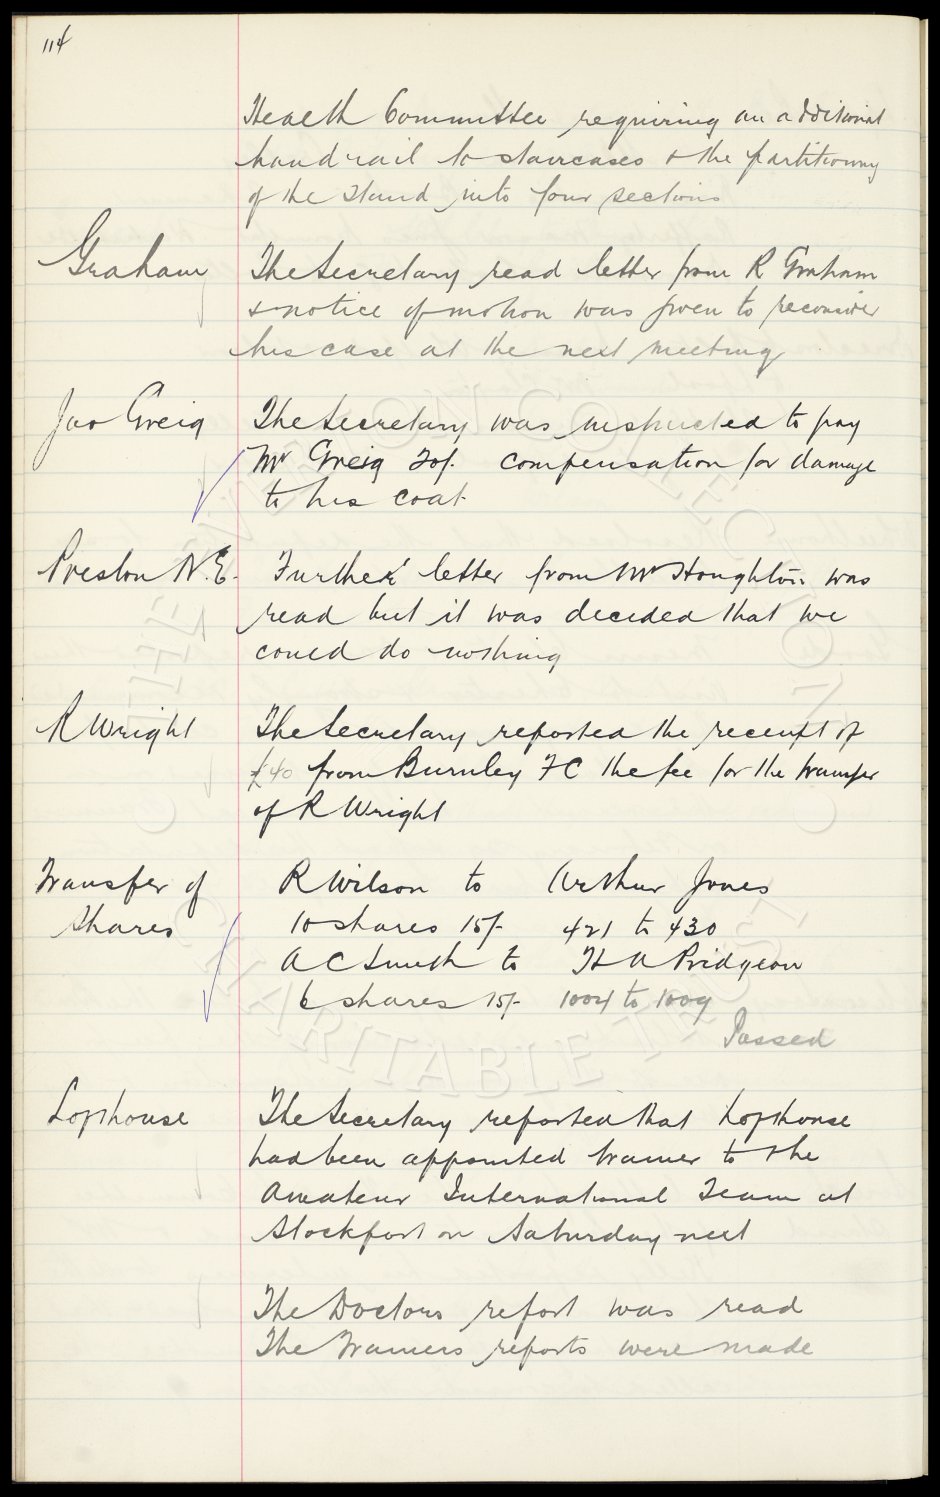 114
Health Committee requiring an additional
handrail to staircases & the partitioning
of the Stand into four sections
Graham
The Secretary read letter from R Graham
& notice of motion was given to reconsider
his case at the next meeting
Jas Greig
The Secretary was instructed to pay
Mr Greig 20/. compensation for damage
to his coat
Preston N.E.
Further letter from Mr Houghton was
read but it was decided that we
could do nothing
R Wright
The Secretary reported the receipt of
£40 from Burnley FC the fee for the transfer
of R Wright
Transfer of
Shares
R Wilson to Arthur Jones
10 shares 15/- 421 to 430
A C Smith to H A Pridgeon
6 shares 15/- 1004 to 1009
Passed
Lofthouse
The Secretary reported that Lofthouse
had been appointed trainer to the
Amateur International Team at
Stockport on Saturday next
The Doctors report was read
The Trainers reports were made
THE EVERTON COLLECTION
CHARITABLE TRUST